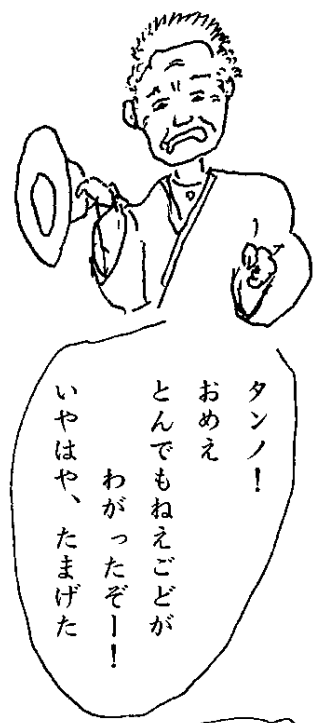 タンノ！
おめえ
とんでもねえごどが
わがったぞー！
いやはや、たまげた